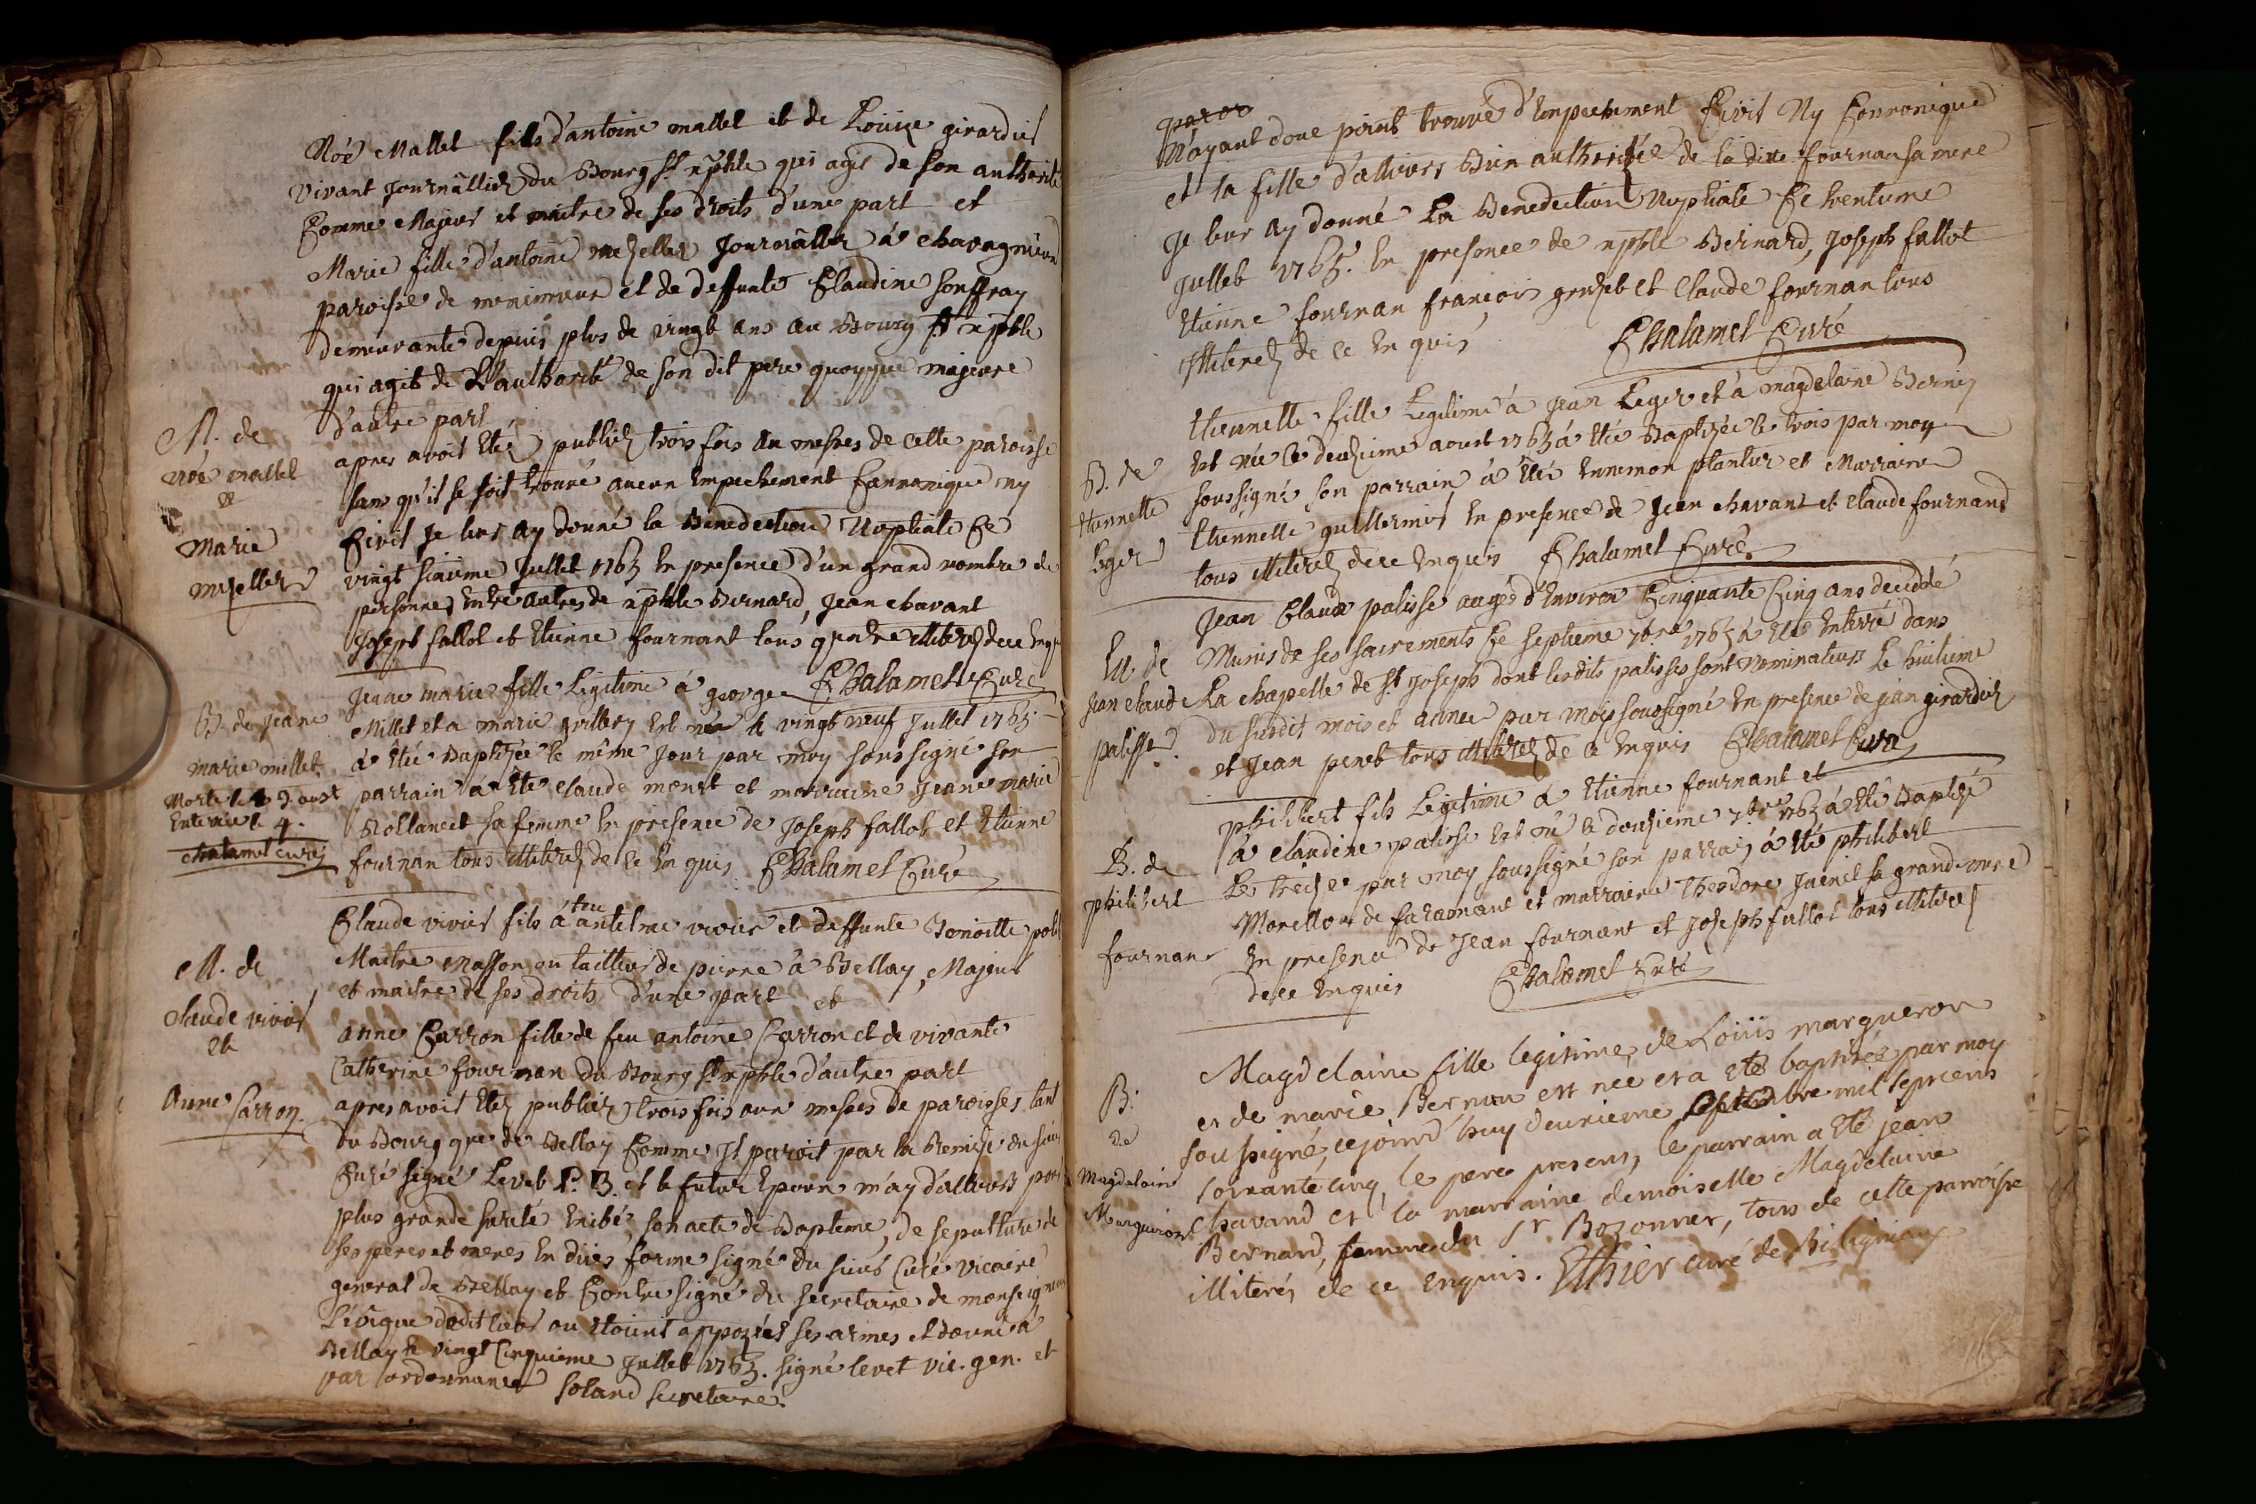 Noé Mallet fils d'antoine mallet et de Louise girardier
vivant Journallier du Bourg St xpbtle qui agit de son authorité
Comme Majeur et maitre de ses droits d'une part et
Marie fille d'antoine mezeller Journallier a chavagnieu
paroisse de et de deffunte Claudine
demeurante depuis plus de vingt ans au Bourg St xpble
qui agit de L'authorité de son dit pere quoyque majeure
d'autre part
M. de
Noé mallet
&
Marie
mezeller
apres avoit Eté publiez trois fois au messes de cette paroisse
sans qu'il se soit trouvé aucun Empechement Cannonique ny
Civil Je leur ay donné la Benediction Nuptiale Ce
vingt sixieme Juillet 1765 En presence d'un grand nombre de
personnes Entre autres de xpble Bernard, Jean chavant
Joseph fallot et Etienne fournant tous quatre illiterez de ce
Chalamel Curé
B. de Jeane
marie millet
Morte le 3 aoust
Enterrée le 4.
chalamel curé
Jeane marie fille Legitime a george
Millet et a marie est née le vingt neuf Juillet 1765
a Eté Baptizée le même Jour par moy soussigné son
parrain a Eté claude et marraine Jeane marie
sa femme En presence de Joseph fallot et Etienne
fournan tous illiterez de ce En quis Chalamel Curé
M. de
claude vivier
et
Anne Carron
Claude vivier fils a feu antelme vivier et deffunte Benoitte
Maitre Masson ou tailleur de pierre a Bellay, Majeur
et maitre de ses droits d'une part et
Anne Carron fille de feu antoine Carron et de vivante
Catherine fournan du Bourg St xpble d'autre part
apres avoit Etez publiez trois fois aux messes de paroisses, tant
du Bourg que de Bellay Comme Il paroit par la Remise du sieur
Curé signé Levet et le futur Epoux m'ay d'ailleurs pour
plus grande sureté Exibé son acte de Bapteme, de sepulture de
ses peres et meres En dües forme signé du sieur Curé vicaire
general de Bellay et Contre signé du secretaire de monseigneur
L'evêque dudit lieu ou Etoint appozées ses armes et donné a
Bellay le vingt Cinquieme Juillet 1765. signé levet vic. gen. et
par ordonnance Soland secretaire.
N'ayant donc point trouvé d'Empechement Civil Ny Connonique
et la fille d'ailleurs Bien authorisée de la ditte fournan sa mere
Je leur ay donné La Benediction Nuptiale Ce trentieme
Juillet 1765. En presence de xpble Bernard, Joseph fallot
Etienne fournan françois et Claude fournan tous
Illiterez de ce En quis Chalamel Curé
B. de
Etiennette
Leger
Etiennette fille Legitime a Jean Leger et a magdelaine
Est née le deuxieme aoust 1765 a Eté Baptizée le trois par moy
soussigné son parrain a Eté Ennemon plantier et Marraine
Etiennette guillermin En presence de Jean chavant et Claude fournand
tous illiterez de ce Enquis Chalamel Curé.
Ent. de
Jean claude
palisse
Jean Claude palisse augés d'Environ Cinquante Cinq ans decedé
Munis de ses sacrements Ce septieme 7bre 1765 a Eté Enterré dans
La chapelle de St Joseph dont lesdits palisses sont Nominateurs Le huitieme
du susdit mois et année par mois soussigné En presence de jean girardier
et Jean penet tous illiterez de ce Enquis Chalamel Curé
B. de
philibert
fournan
philibert fils Legitime a Etienne fournant et
a claudine palisse Est né le douzieme 7bre 1765 a Eté Baptizé
Le treize par moy soussigné son parrain a Eté philibert
Morellon de faramant et marraine Theodore Juenet sa grand mere
En presence de Jean fournant et Joseph fallot tous illiterez
de ce Enquis Chalamel Curé
B.
de
Magdelaine
Margueron
Magdelaine fille legitime de Loüis margueron
et de marie Bernau est née et a eté baptisée par moy
soussigné, cejourd'huy deuxieme septembre mil septcens
soixante cinq, le pere presens, le parrain a eté jean
chavand et la marraine demoiselle Magdelaine
Bernard, femme du Sr. Bozonnier, tous de cette parroisse
illiterés de ce enquis. Ethier curé de Biligneux